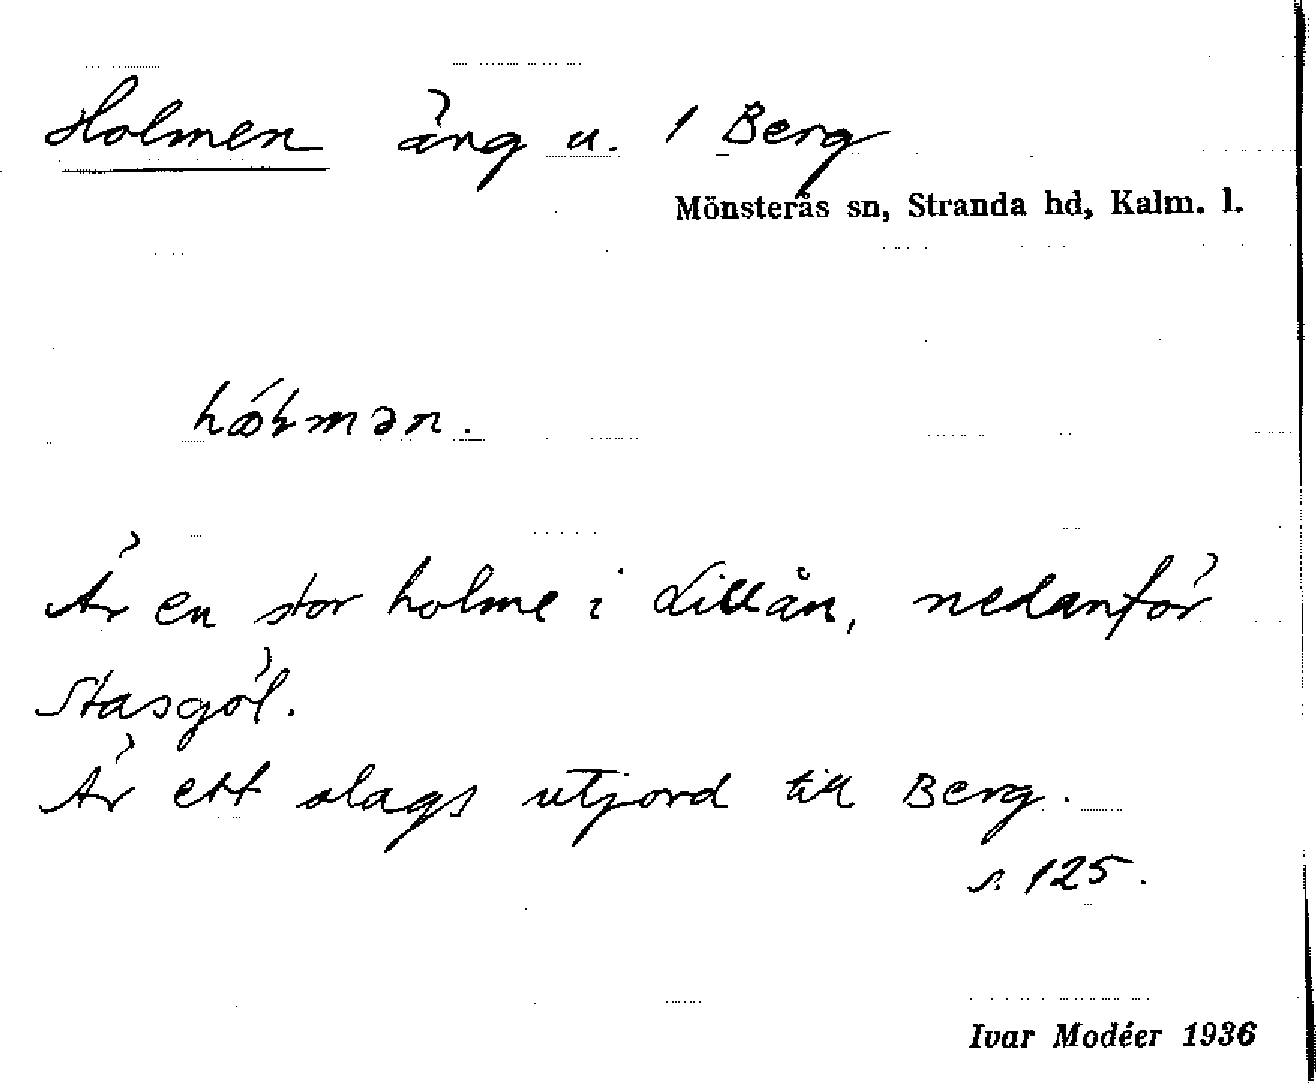 Holmen äng u. 1 Berg
Mönsterås sn, Stranda hd, Kalm. l.
Är en stor holme i Lillån, nedanför
Stasgöl.
Är ett slags utjord till Berg.
s. 125.
Ivar Modéer 1936